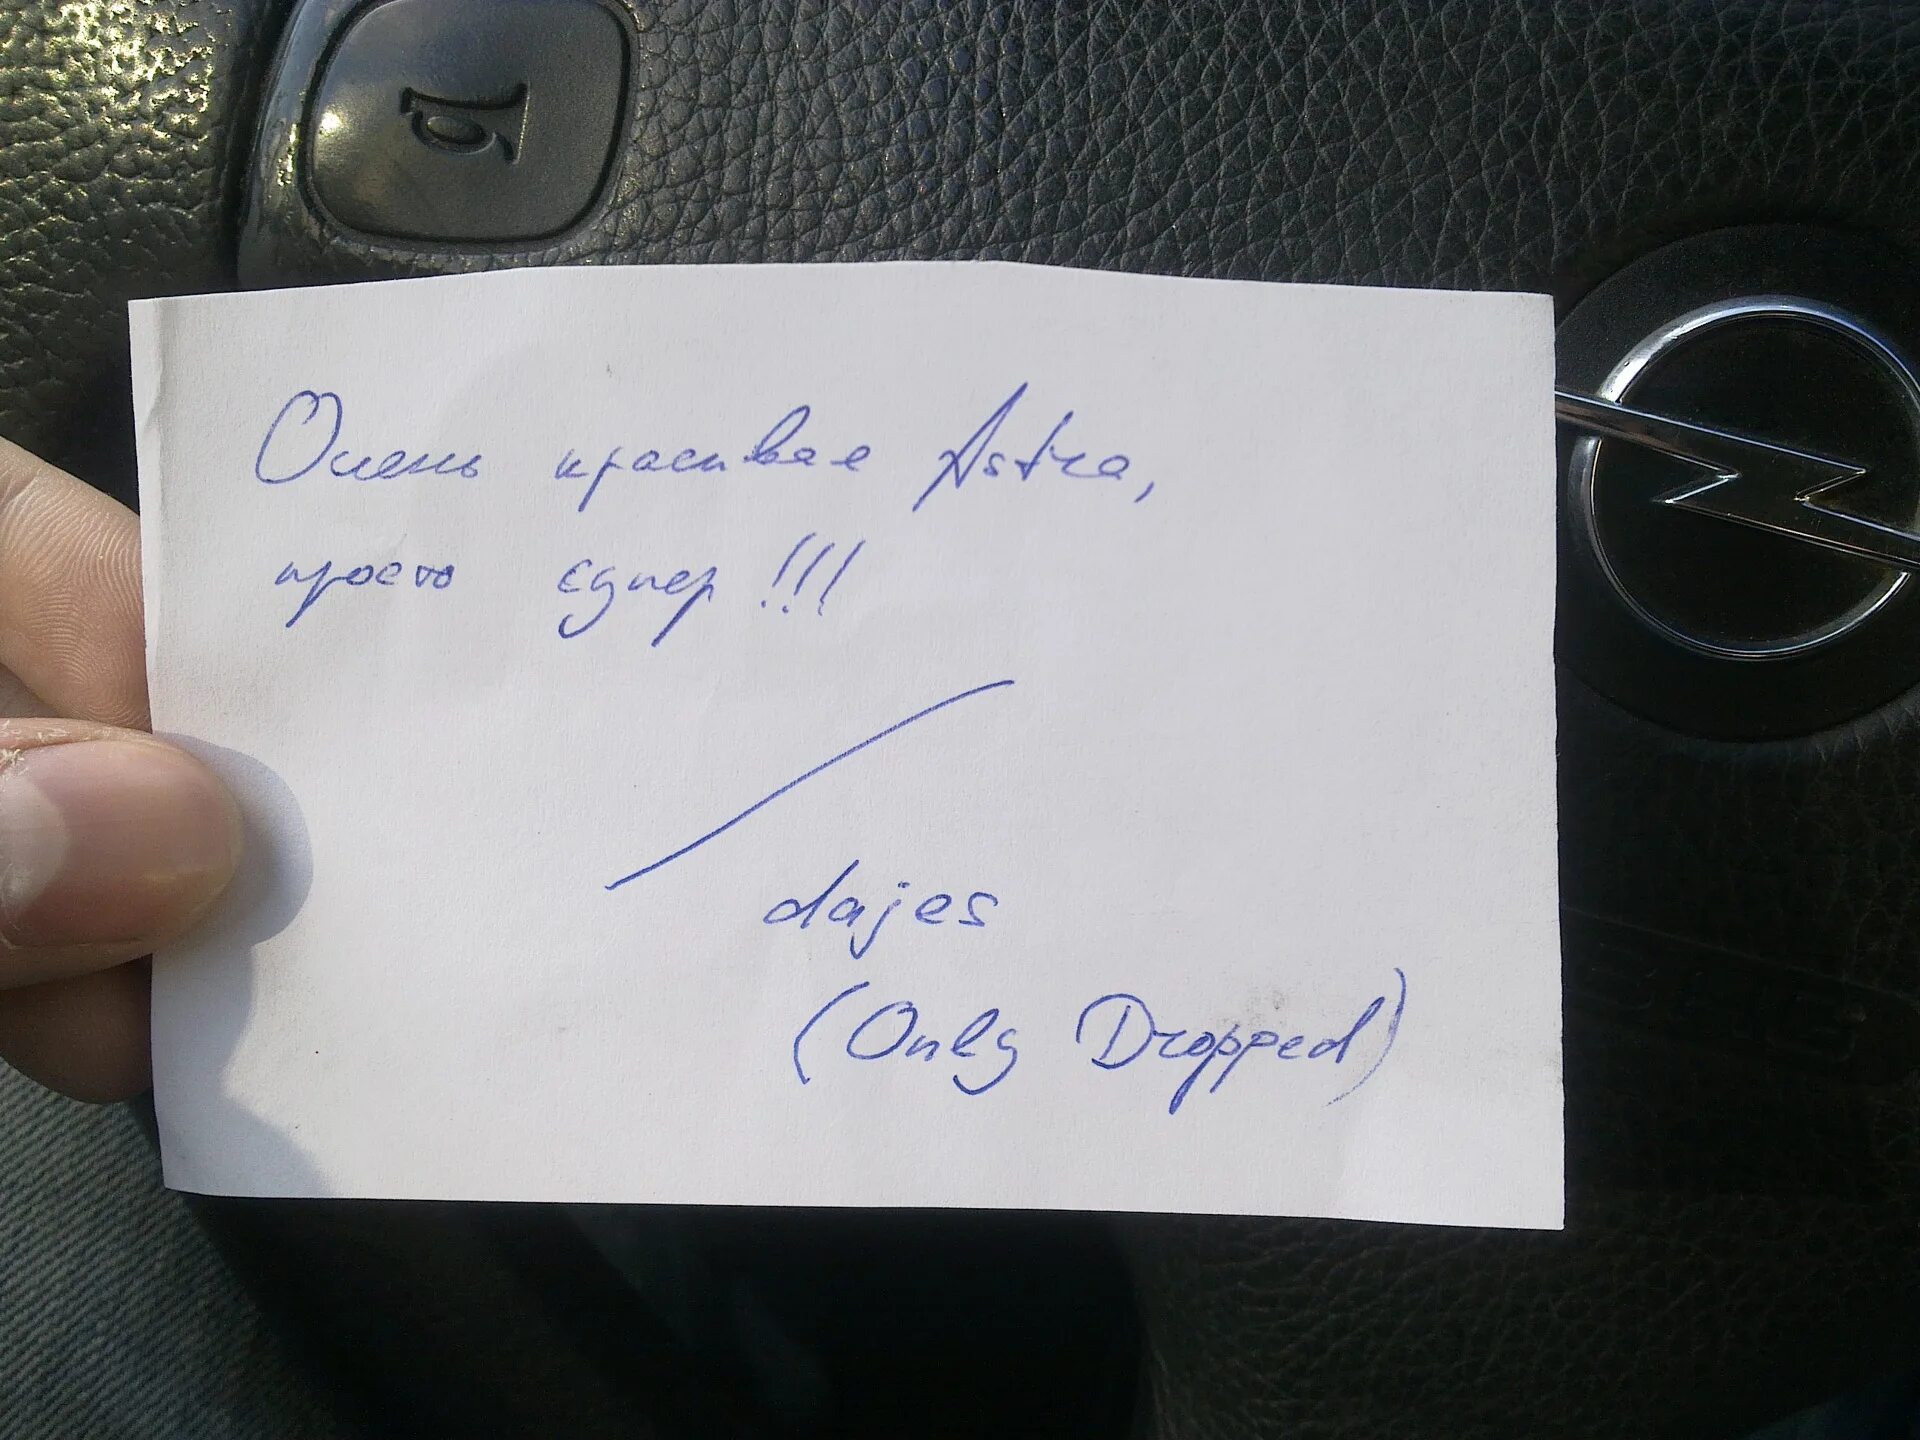 Очень красивая Astra,
просто супер!!!
dajes
(Only Dropped)